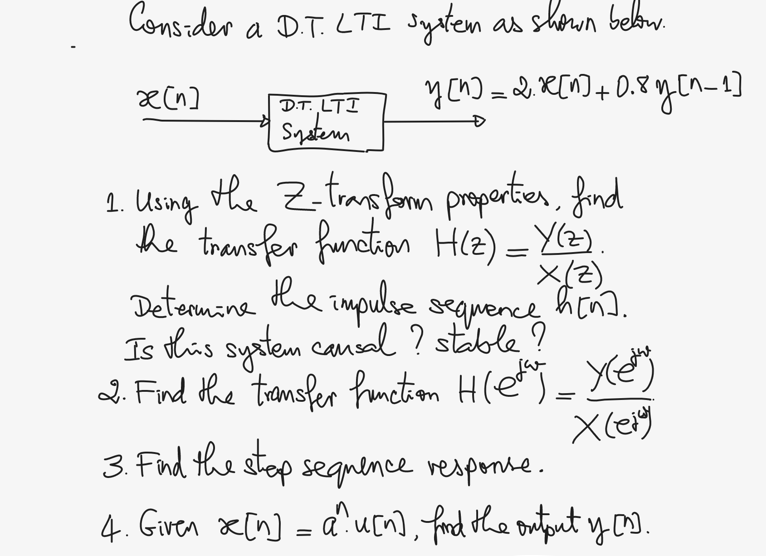 Consider a D.T. LTI system as shown below.
x[n]
D.T. LTI
System
y[n] = 2.x[n] + 0.8 y[n-1]
1. Using the Z-transform properties, find
the transfer function H(z) = Y(z)/X(z).
Determine the impulse sequence h[n].
Is this system causal? stable?
2. Find the transfer function H(e^jw) = Y(e^jw)/X(e^jw)
3. Find the step sequence response.
4. Given x[n] = a^n.u[n], find the output y[n].